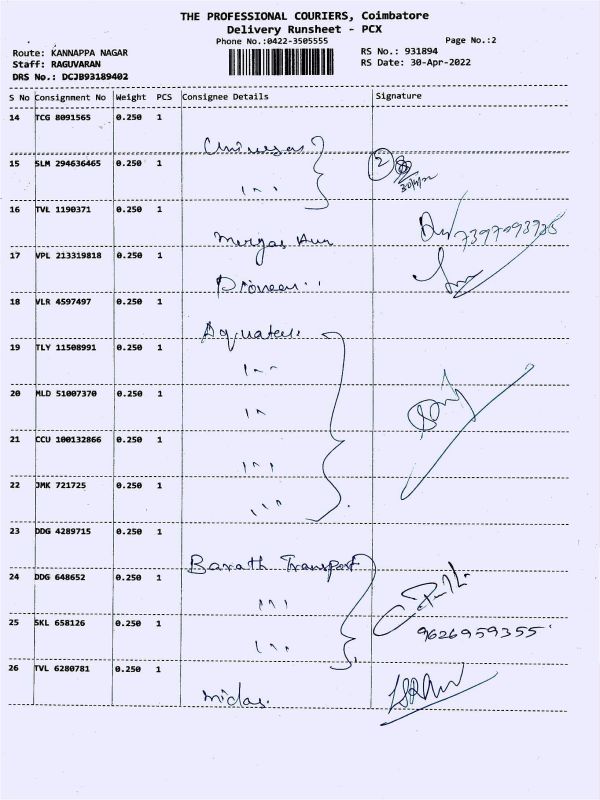 THE PROFESSIONAL COURIERS, Coimbatore
Delivery Runsheet - PCX
Phone No.:0422-3505555
Page No.:2
Route: KANNAPPA NAGAR
RS No.: 931894
Staff: RAGUVARAN
RS Date: 30-Apr-2022
DRS No.: DCJB93189402
S No Consignment No Weight PCS Consignee Details Signature
14 TCG 8091565 0.250 1
15 SLM 294636465 0.250 1
2
30/4/22
16 TVL 1190371 0.250 1
7397093925
17 VPL 213319818 0.250 1
Pioneer
18 VLR 4597497 0.250 1
Aquatex
19 TLY 11508991 0.250 1
20 MLD 51007370 0.250 1
21 CCU 100132866 0.250 1
22 JMK 721725 0.250 1
23 DDG 4289715 0.250 1
Barath Transport
24 DDG 648652 0.250 1
25 SKL 658126 0.250 1
9626959355
26 TVL 6280781 0.250 1
Midas